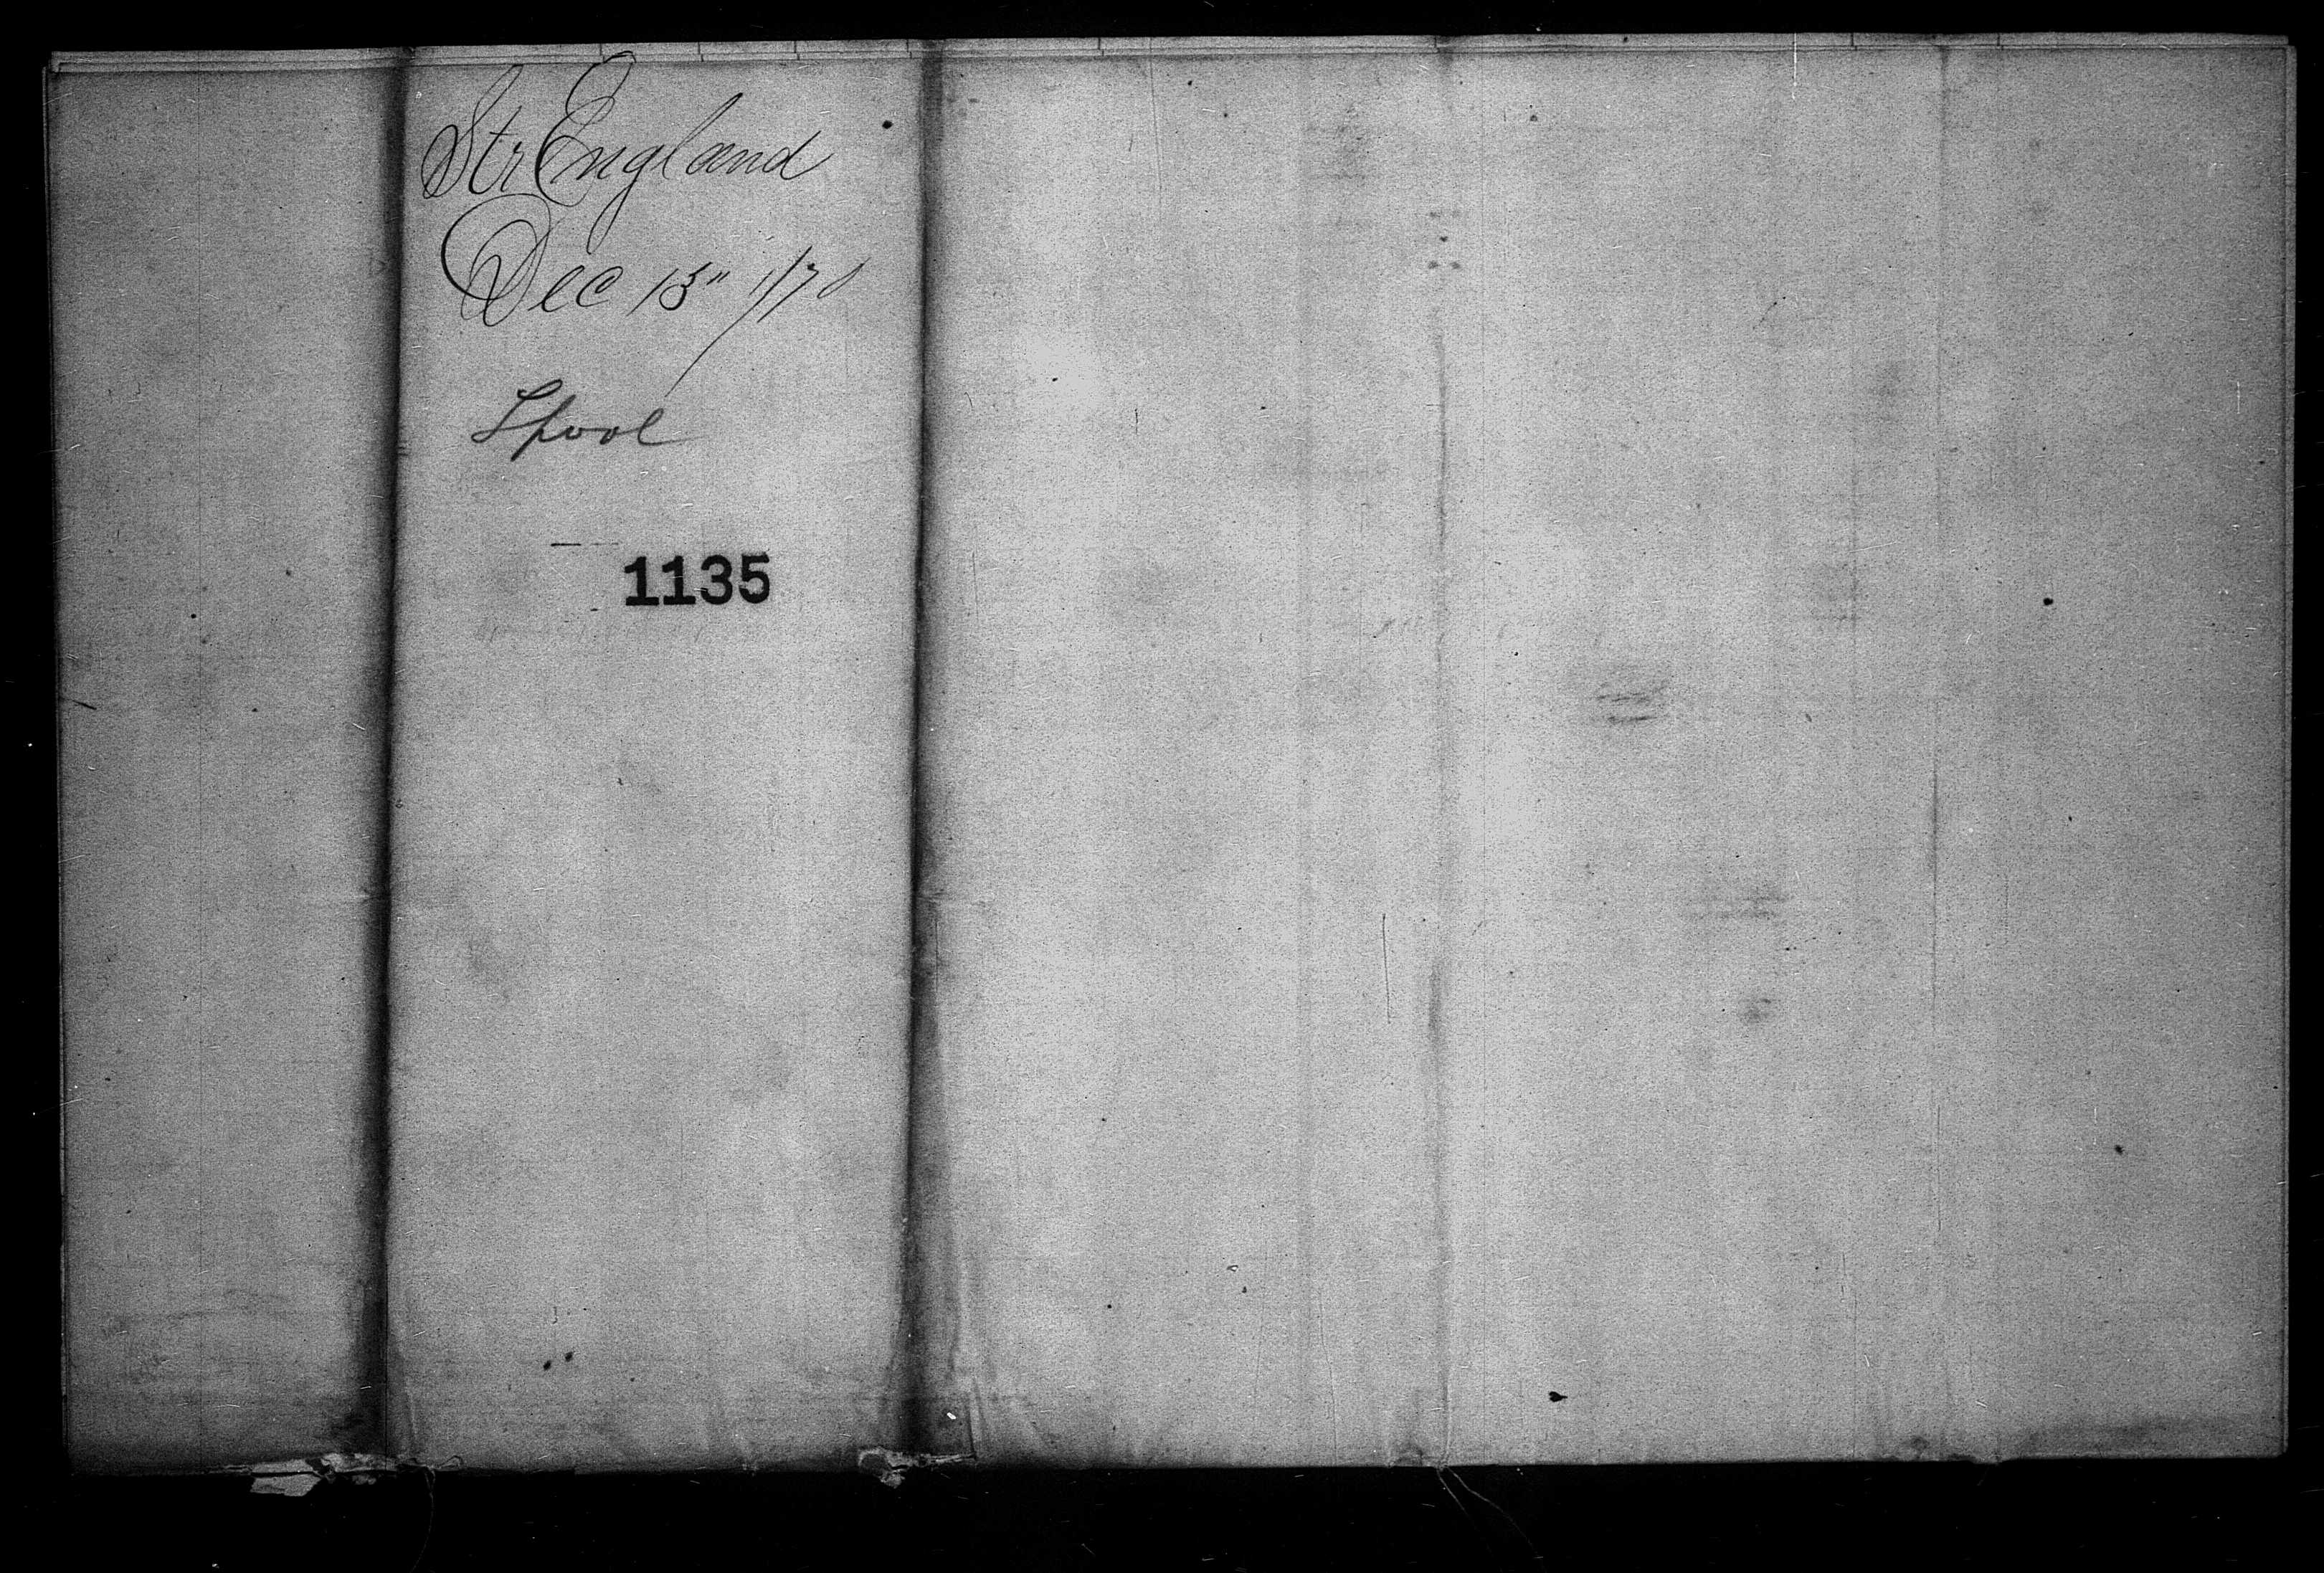 Str England
Dec 15"
Lpool
1135